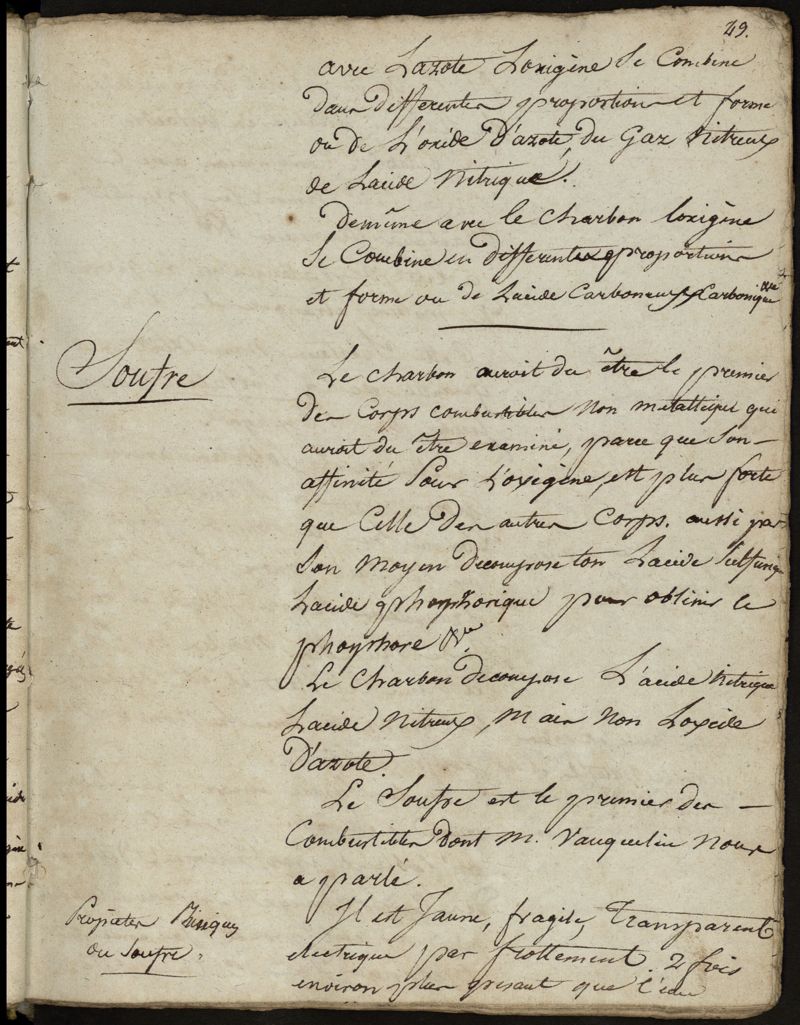 49.
avec Lazote Loxigène se Combine
dans differentes proportions et forme
ou de L'oxide D'azote, du Gaz Nitreux
de Lacide Nitrique.
demême avec le charbon loxigène
se Combine en differentes proportions
et forme ou de Lacide Carboneux, Carbonique &c
Soufre
Le charbon auroit du être le premier
des Corps combustibles non metallique qui
auroit du être examiné, parce que son
affinité pour L'oxigène, est plus forte
que Celle des autres Corps. aussi par
son moyen decompose ton Lacide Sulfurique
Lacide phosphorique pour obtenir le
phosphore &c.
Le Charbon decompose L'acide Nitrique
Lacide Nitreux, mais non Loxide
D'azote
Le Soufre est le premier des
Combustibles dont M. Vauquelin nous
a parlé.
Propietes
du Soufre.
Il est Jaune, fragile, Transparent
electrique par frottement. 2 fois
environ plus pesant que l'eau